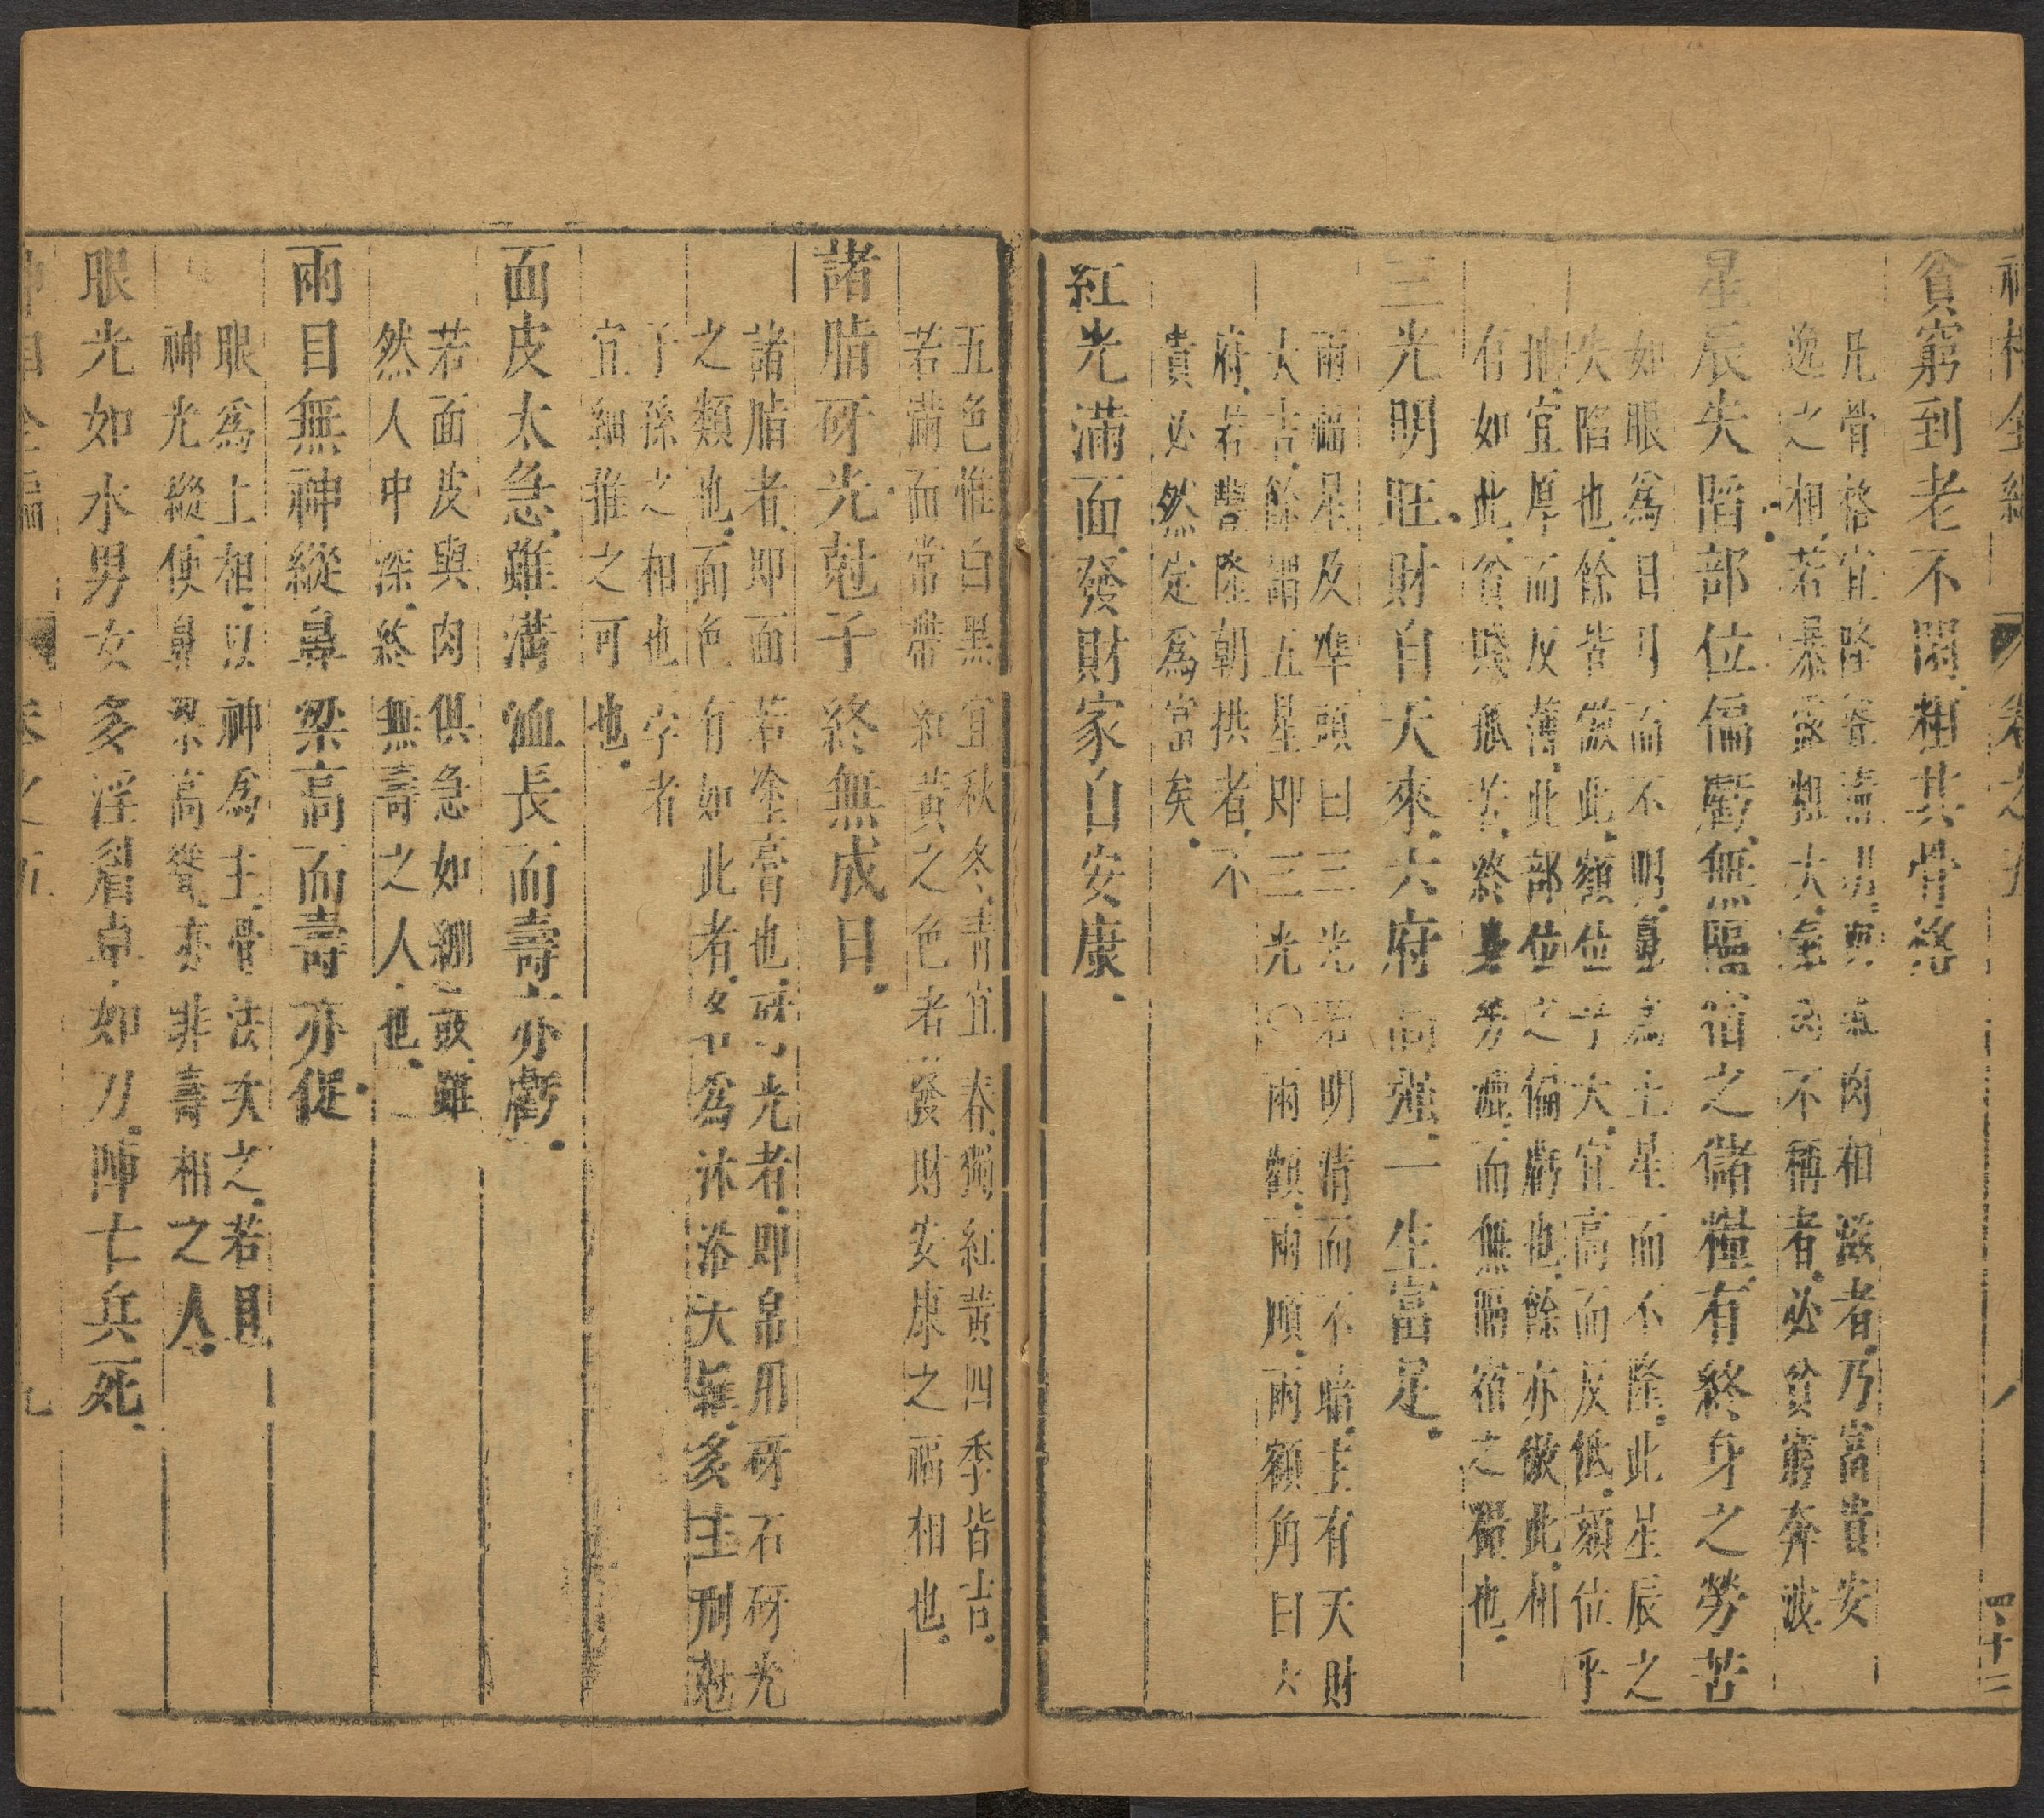 神相全編 卷之五 四十二
貧窮到老不閑粗其骨格
凡骨格宜隆聳清明與氣肉相滋者乃富貴安
逸之相若暴露粗大氣肉不稱者必貧窮奔波
星辰失陷部位偏虧無隔宿之儲糧有終身之勞苦
如眼為日月而不明鼻為土星而不隆此星辰之
失陷也餘皆倣此額位乎大宜高而反低頦位乎
地宜厚而反薄此部位之偏虧也餘亦倣此相
有如此貧賤孤苦終身勞碌而無隔宿之糧也
三光明旺財自天來六府高強一生富足
兩福星及準頭曰三光若明清而不暗主有天財
大吉餘謂五星即三光〇兩顴兩頤兩額角曰六
府若豐隆朝拱者不
貴必然定為富矣
紅光滿面發財家自安康
五色惟白黑宜秋冬青宜春獨紅黃四季皆吉
若滿面常帶紅黃之色者發財安康之福相也
諸脂砑光尅子終無成日
諸脂者即面若塗膏也砑光者即帛用砑石砑光
之類也面色有如此者名為沐浴大難多主刑尅
子孫之相也學者
宜細推之可也
面皮太急雖溝洫長而壽亦虧
若面皮與肉俱急如繃鼓雖
然人中深終無壽之人也
兩目無神縱鼻梁高而壽亦促
眼為上相以神為主骨法次之若目
神光縱使鼻梁高聳亦非壽相之人
眼光如水男女多淫眉卓如刀陣亡兵死
神相全編 卷之五 九